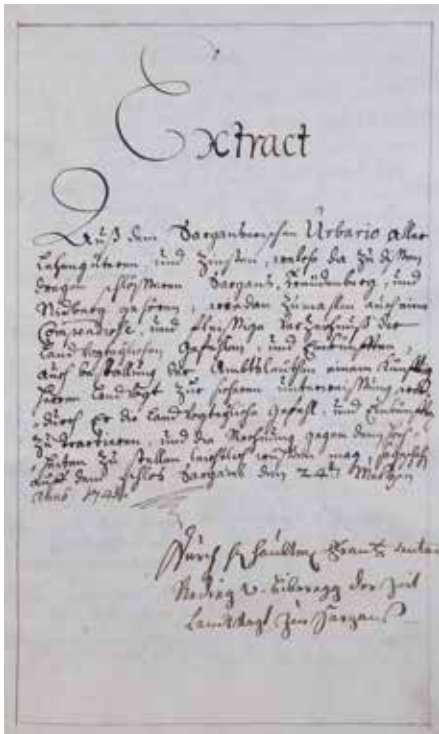 Extract
Auß dem Sarganserischen Urbario aller
Lehengüteren und Zinsen, welche da zu disen
dreyen schlösseren Sargans, Freüdenberg, und
Nidberg gehören, worden zumahlen auch eine
Compendiose, und fleissige Verzeichnuß der
Landvogteylichen Gefählen, und Einkünfften,
auch der Ambtsleüthen einem Künfftig
Herren Landtvogt zur sicheren underweissung,
durch Er die Landvogteyliche Gefähl, und Einkünfften
zu tractieren, und die Rechnung gegen den
zu stellen mag,
auß dem schloß Sargans den 24ten Mertzen
Anno
Durch H. Haubtm. Frantz
Reding v. Biberegg der Zeit
Landtvogt zu Sargans